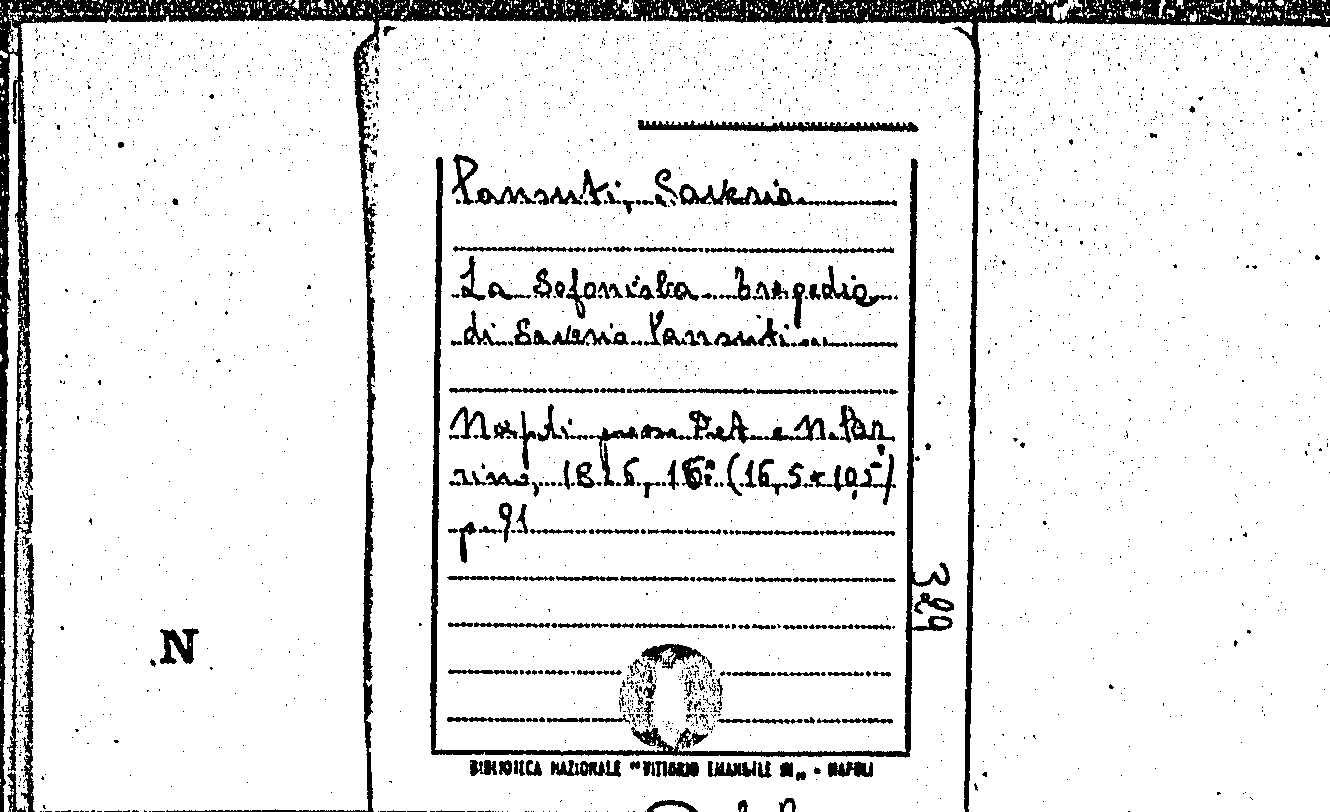 Pansuti, Saverio
La Sofonisba tragedia
di Saverio Pansuti...
Napoli presso F. e N. Par
rino, 16° (16,5 x 10,5)
p. 91
329
N
BIBLIOTECA NAZIONALE "VITTORIO EMANUELE III" - NAPOLI